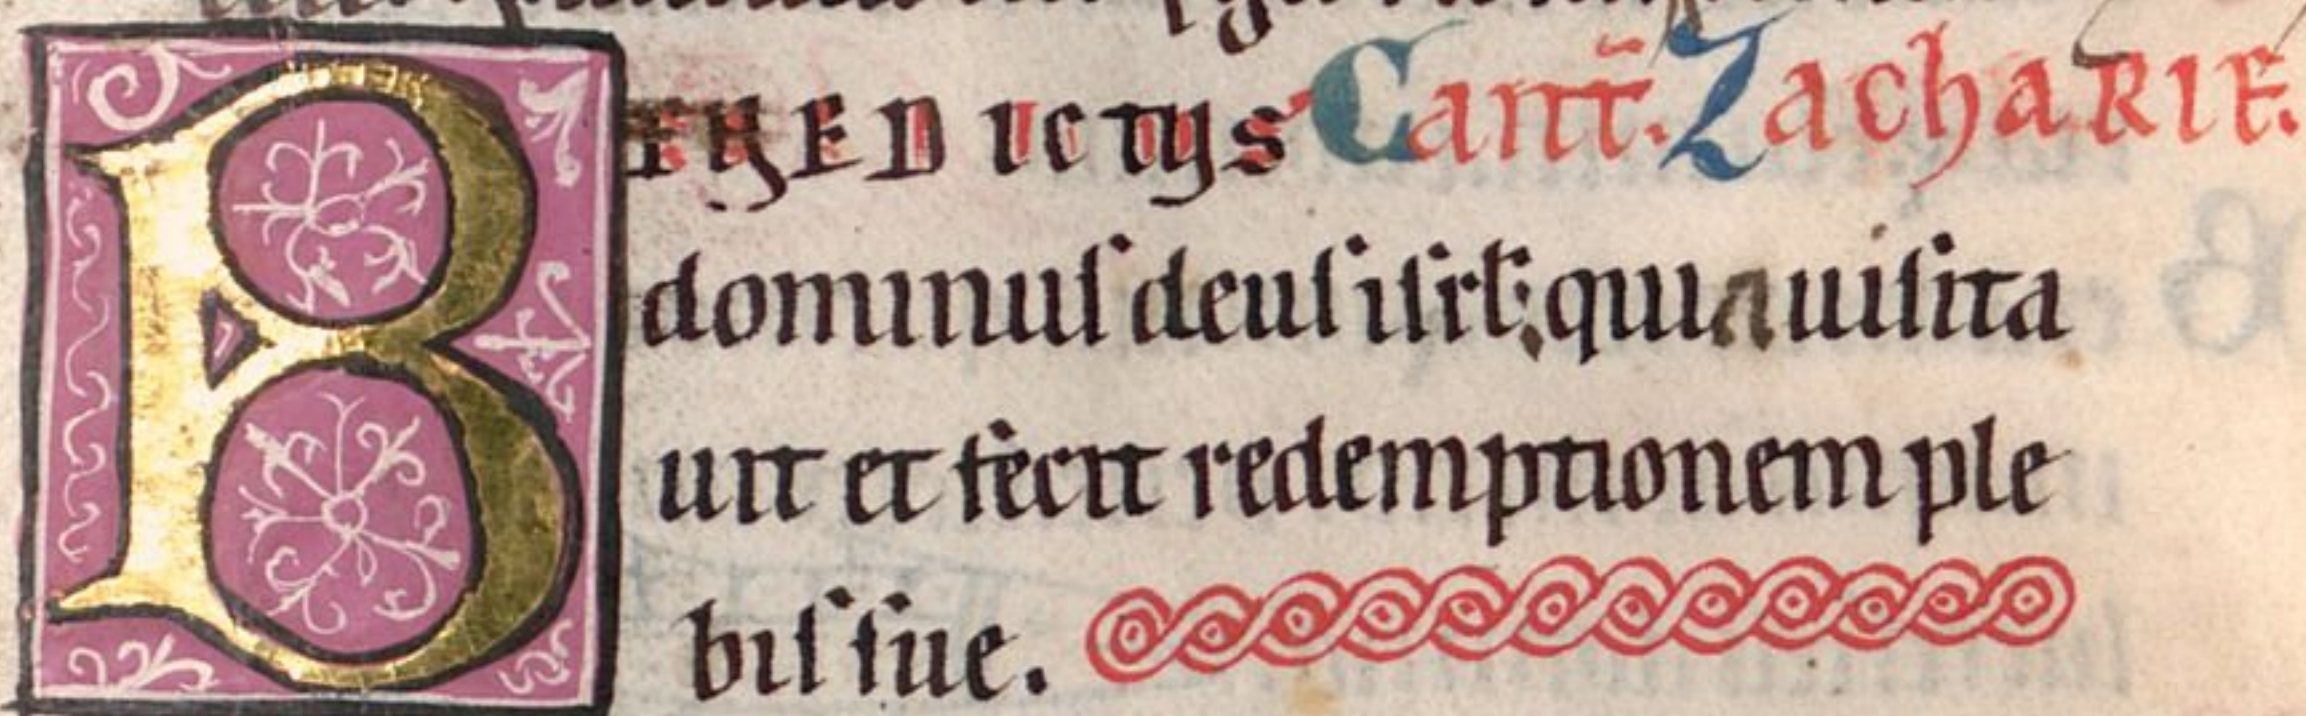 BENEDICTUS Cant̃. ZachARIE.
dominuſ deuſ iſrł; quia uiſita
uit et fecit redemptionem ple
biſ ſue.